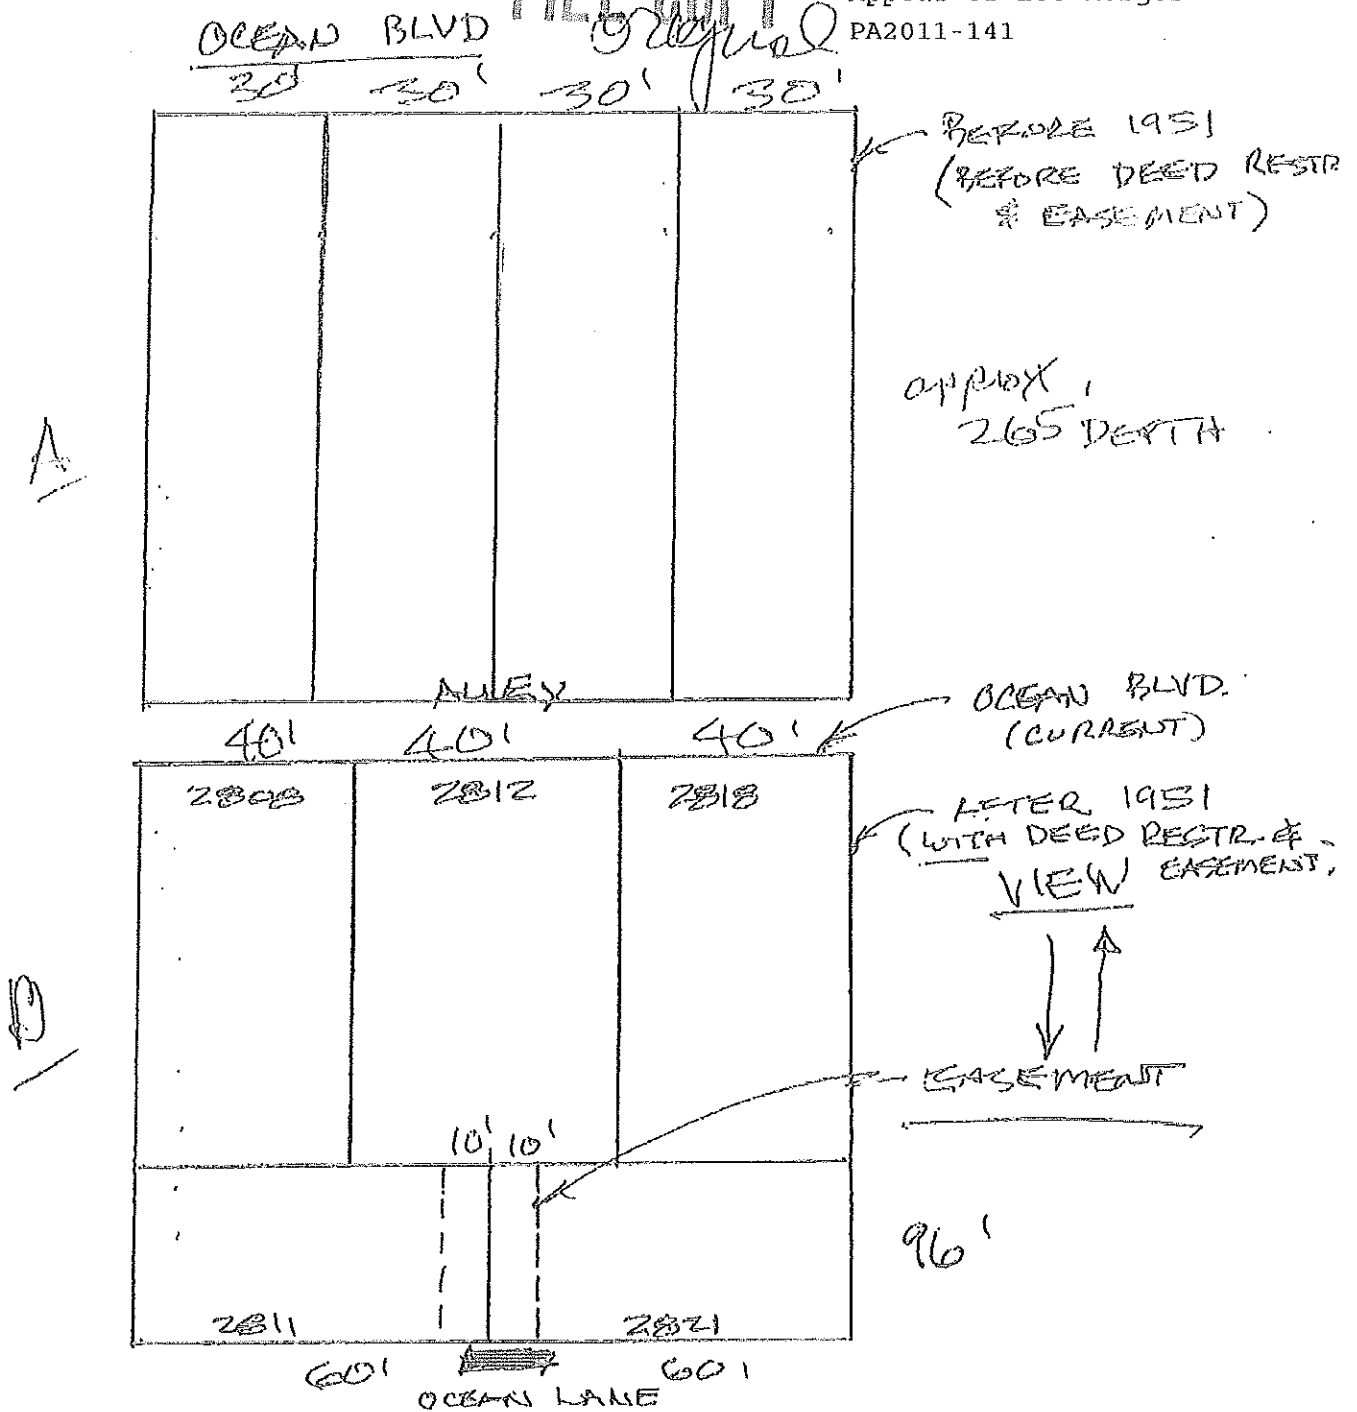 PA2011-141
OCEAN BLVD
Original
30' 30' 30' 30'
BEFORE 1951
(BEFORE DEED RESTR
& EASEMENT)
approx.
265' DEPTH
A
ALLEY
40' 40' 40'
OCEAN BLVD.
(CURRENT)
2808 2812 2818
AFTER 1951
(WITH DEED RESTR. &
EASEMENT.
VIEW
B
EASEMENT
10' 10'
96'
2811 2821
60' 60'
OCEAN LANE